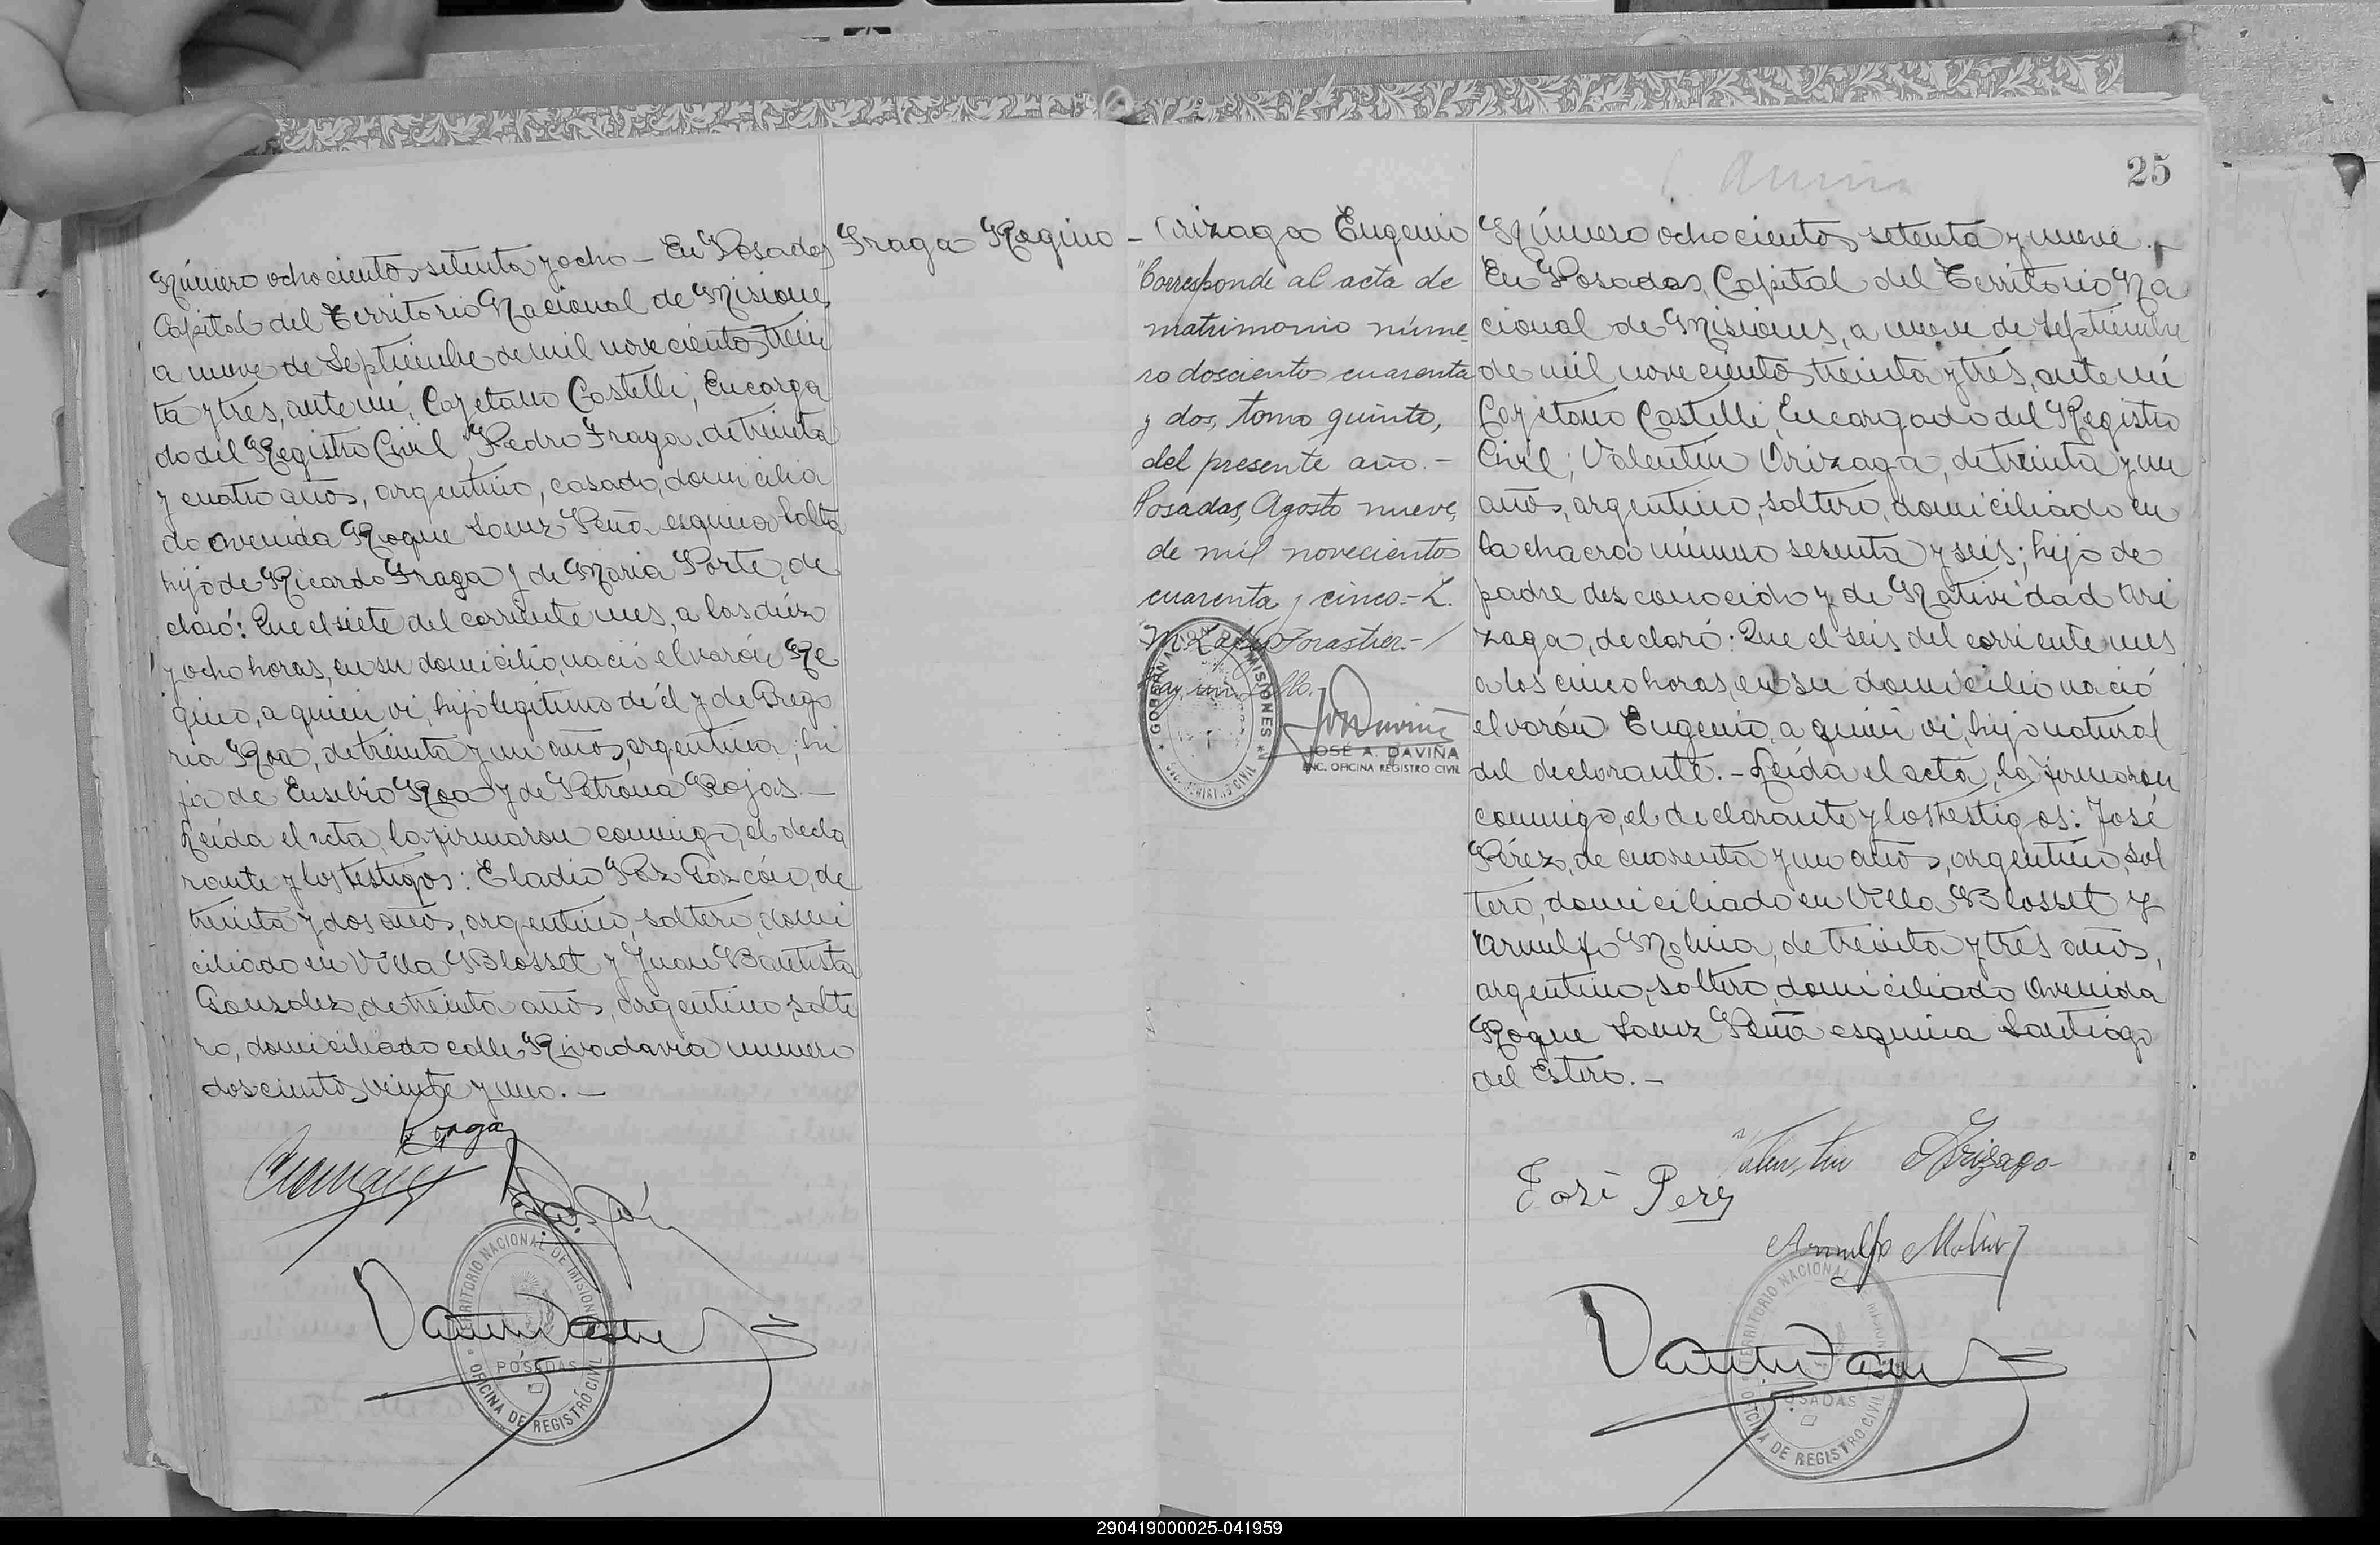 Número ochocientos setenta y ocho - En Posadas
Capital del Territorio Nacional de Misiones
a nueve de Septiembre de mil novecientos trein
ta y tres, ante mí, Cayetano Castelli, Encarga
do del Registro Civil, Pedro Fraga, de treinta
y cuatro años, argentino, casado, domicilia
do avenida Roque Saenz Peña esquina Salta
hijo de Ricardo Fraga y de Maria Porte, de
claró: Que el siete del corriente mes, a las diez
y ocho horas, en su domicilio, nació el varón Re
gino, a quien vi, hijo legítimo de él y de Grego
ria Roa, de treinta y un años, argentina, hi
ja de Eusebio Roa y de Petrona Rojas. -
Leída el acta, la firmaron conmigo, el decla
rante y los testigos: Eladio Paz, de
treinta y dos años, argentino, soltero, domi
ciliado en Villa Blosset y Juan Bautista
Gonzalez, de treinta años, argentino, solte
ro, domiciliado calle Rivadavia numero
doscientos veinte y uno. -
Fraga Regino -
TERRITORIO NACIONAL DE MISIONES
POSADAS
OFICINA DE REGISTRO CIVIL
Arizaga Eugenio
"Corresponde al acta de
matrimonio núme-
ro doscientos cuarenta
y dos, tomo quinto,
del presente año. -
Posadas, Agosto nueve,
de mil novecientos
cuarenta y cinco. - L.
Forastier. -
Hay un sello.
MISIONES
REGISTRO CIVIL
JOSÉ A. DAVIÑA
ENC. OFICINA REGISTRO CIVIL
25
Número ochocientos setenta y nueve. -
En Posadas, Capital del Territorio Na
cional de Misiones, a nueve de Septiembre
de mil novecientos treinta y tres, ante mí
Cayetano Castelli, Encargado del Registro
Civil; Valentin Arizaga, de treinta y un
años, argentino, soltero, domiciliado en
la chacra número sesenta y seis; hijo de
padre desconocido y de Natividad Ari
zaga, declaró: Que el seis del corriente mes
a las cinco horas, en su domicilio nació
el varón Eugenio, a quien vi, hijo natural
del declarante. - Leída el acta, la firmaron
conmigo, el declarante y los testigos: José
Pérez, de cuarenta y un años, argentino, sol
tero, domiciliado en Villa Blosset y
Arnulfo Molina, de treinta y tres años,
argentino, soltero, domiciliado Avenida
Roque Saenz Peña esquina Santiago
del Estero. -
Valentin Arizaga
José Perez
Arnulfo Molina
TERRITORIO NACIONAL DE MISIONES
POSADAS
OFICINA DE REGISTRO CIVIL
290419000025-041959